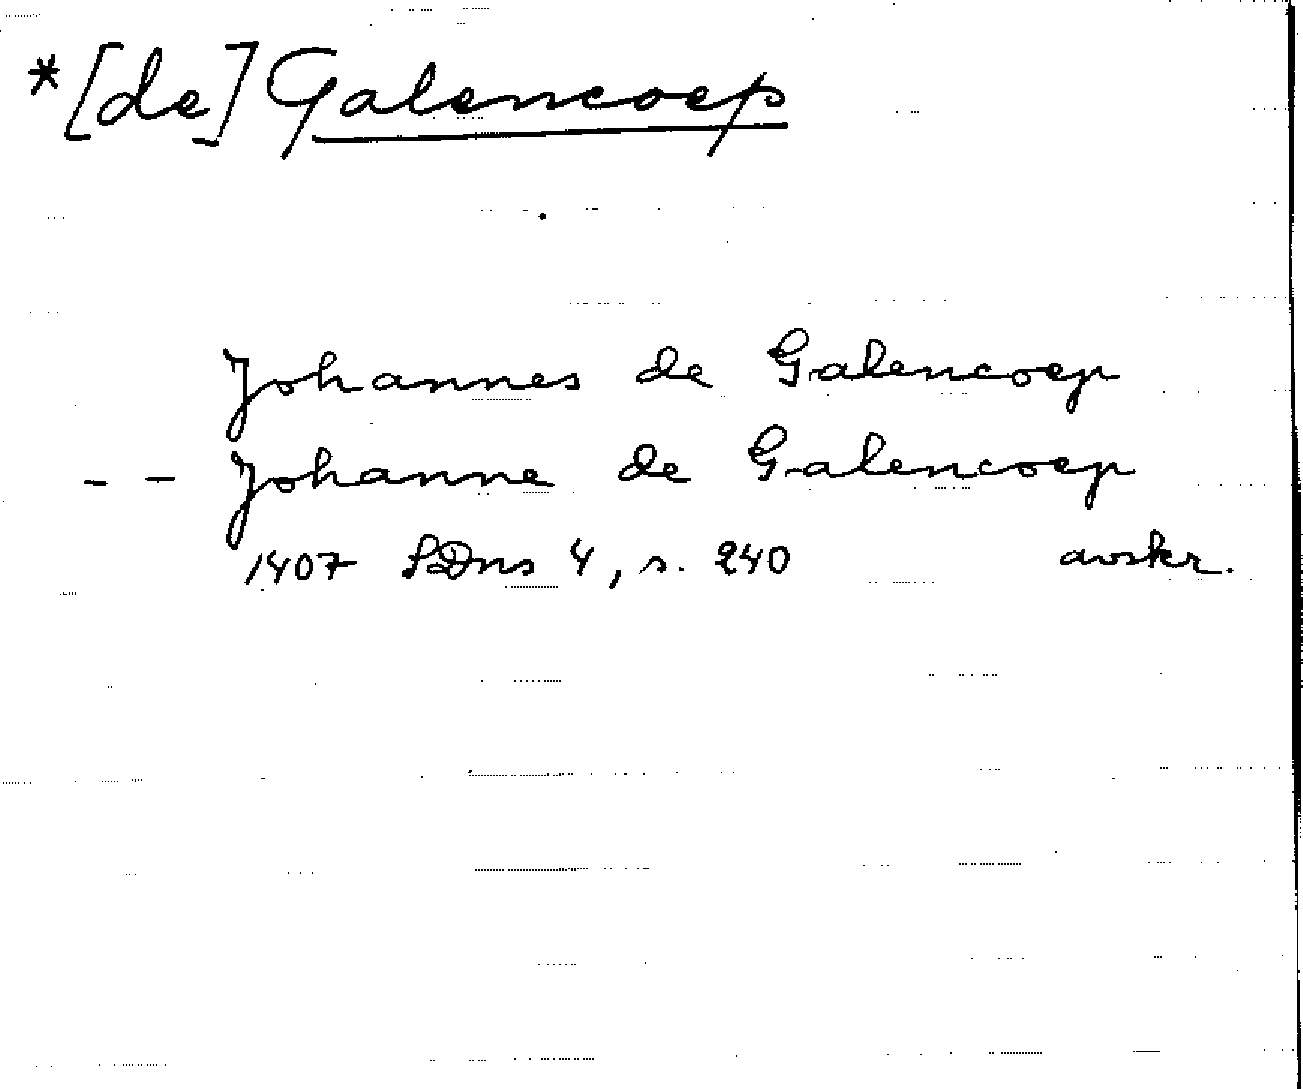 *[de] Galencoep
Johannes de Galencoep
- - Johanne de Galencoep
1407 SDns 4, s. 240 avskr.